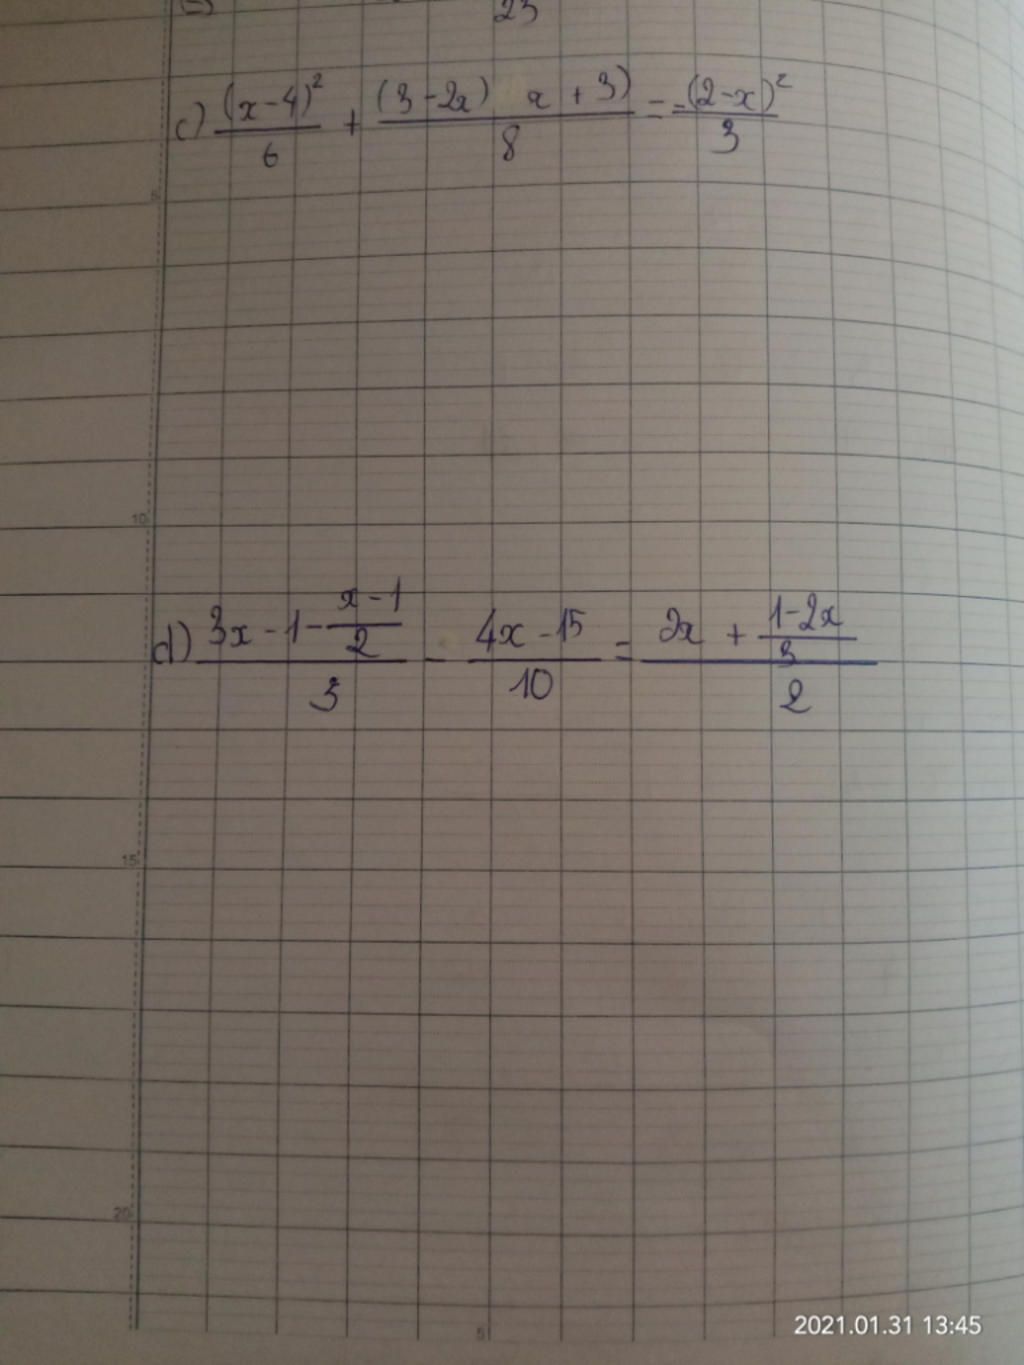 23
c) (x-4)²/6 + (3-2x) x + 3)/8 = -(2-x)²/3
5
10
d) (3x-1-(x-1)/2)/3 - (4x-15)/10 = (2x + (1-2x)/3)/2
15
20
5
2021.01.31 13:45